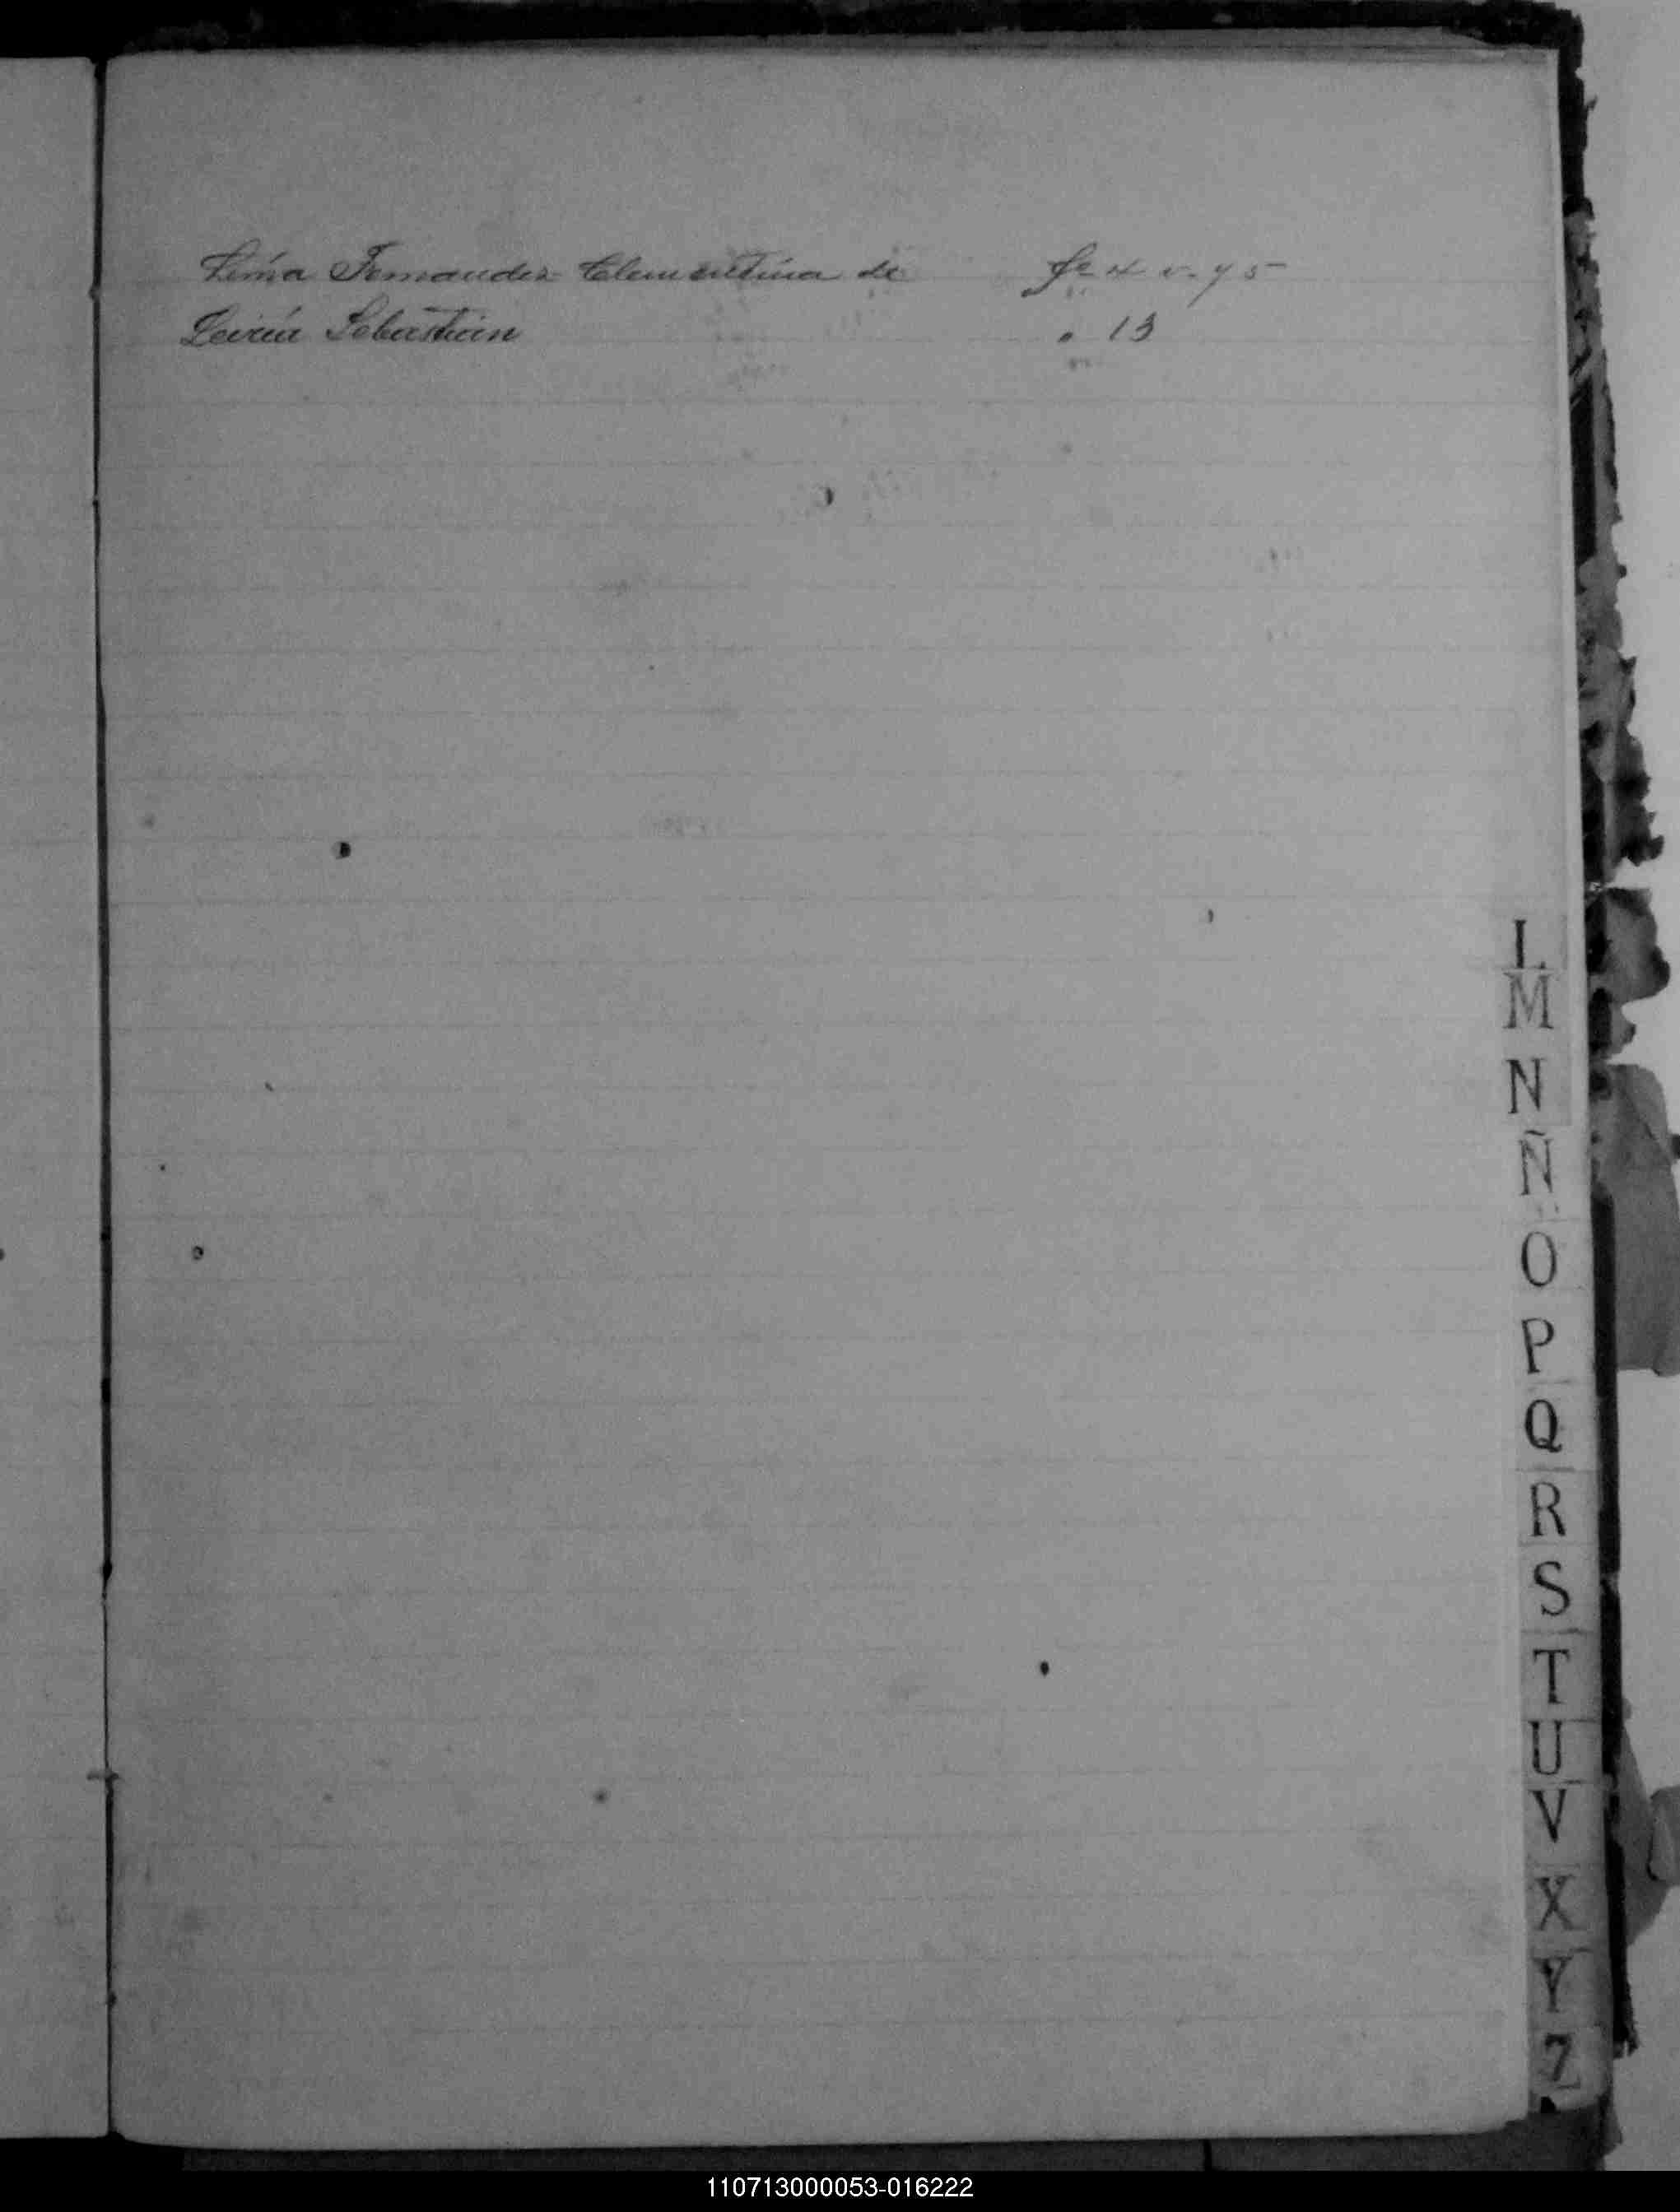 Lima Fernandez Clementina de fs 4 v. y 5
Leiría Sebastian " 13
L
M
N
Ñ
O
P
Q
R
S
T
U
V
X
Y
Z
110713000053-016222